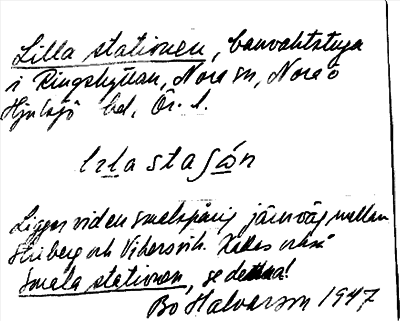 Lilla stationen, banvaktstuga
i Ringshyttan, Nora sn, Nora o
Hjulsjö bd, Ör. l.
lıla staʃѡ́n
Ligger vid en smalspårig järnväg mellan
Striberg och Vikersvik. Kallas också
Smala stationen, se detta!
Bo Halvarson 1947